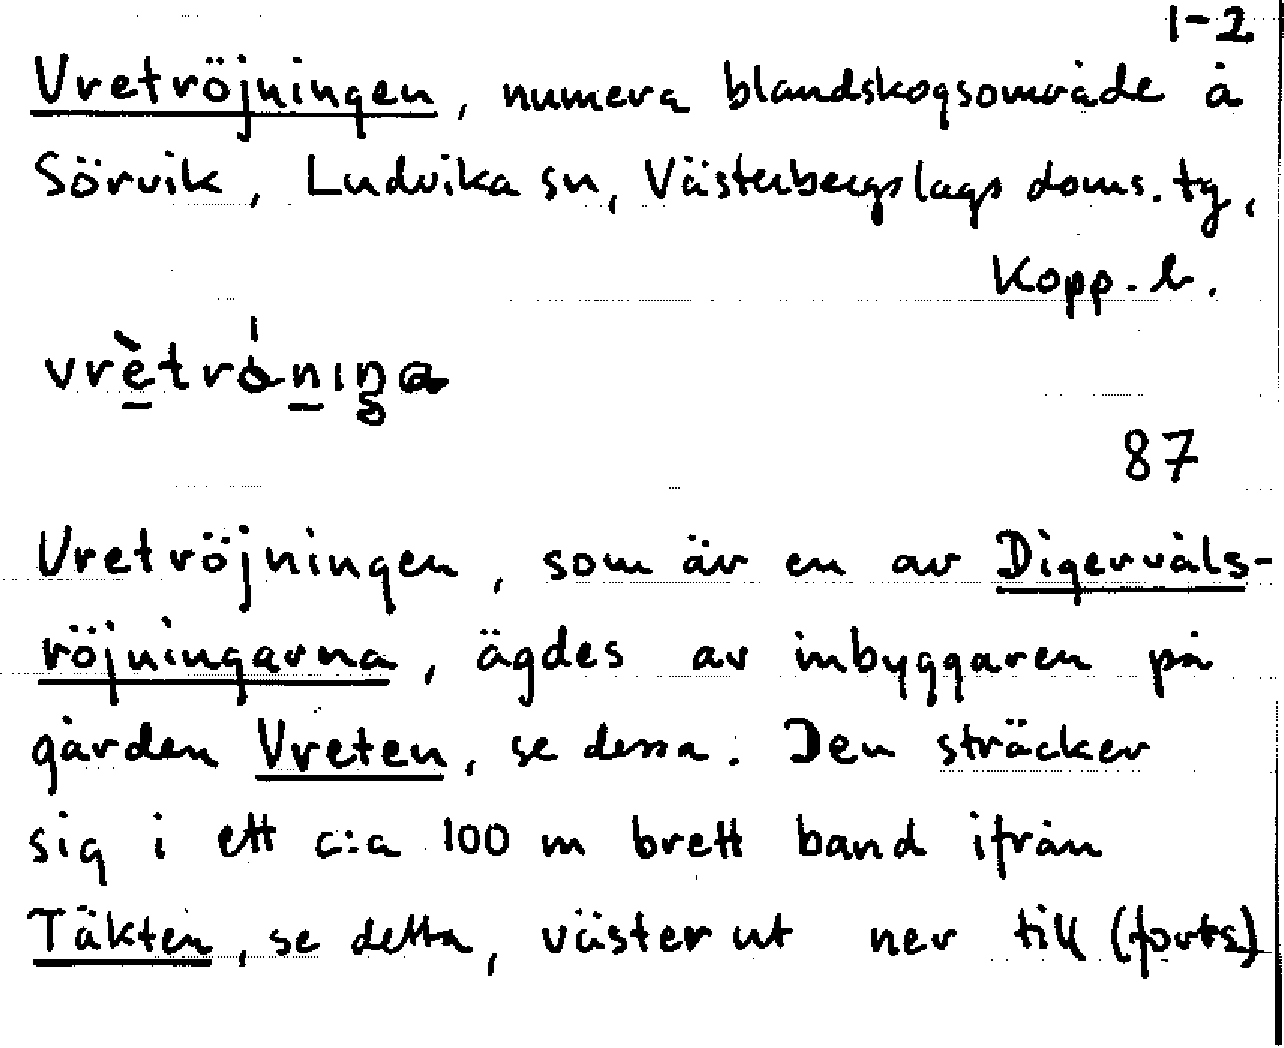 1-2
Vretröjningen, numera blandskogsområde å
Sörvik, Ludvika sn, Västerbergslags doms. tg,
Kopp. l.
87
Vretröjningen, som är en av Digervåls-
röjningarna, ägdes av inbyggaren på
gården Vreten, se dessa. Den sträcker
sig i ett c:a 100 m brett band ifrån
Täkten, se detta, väster ut ner till (forts)